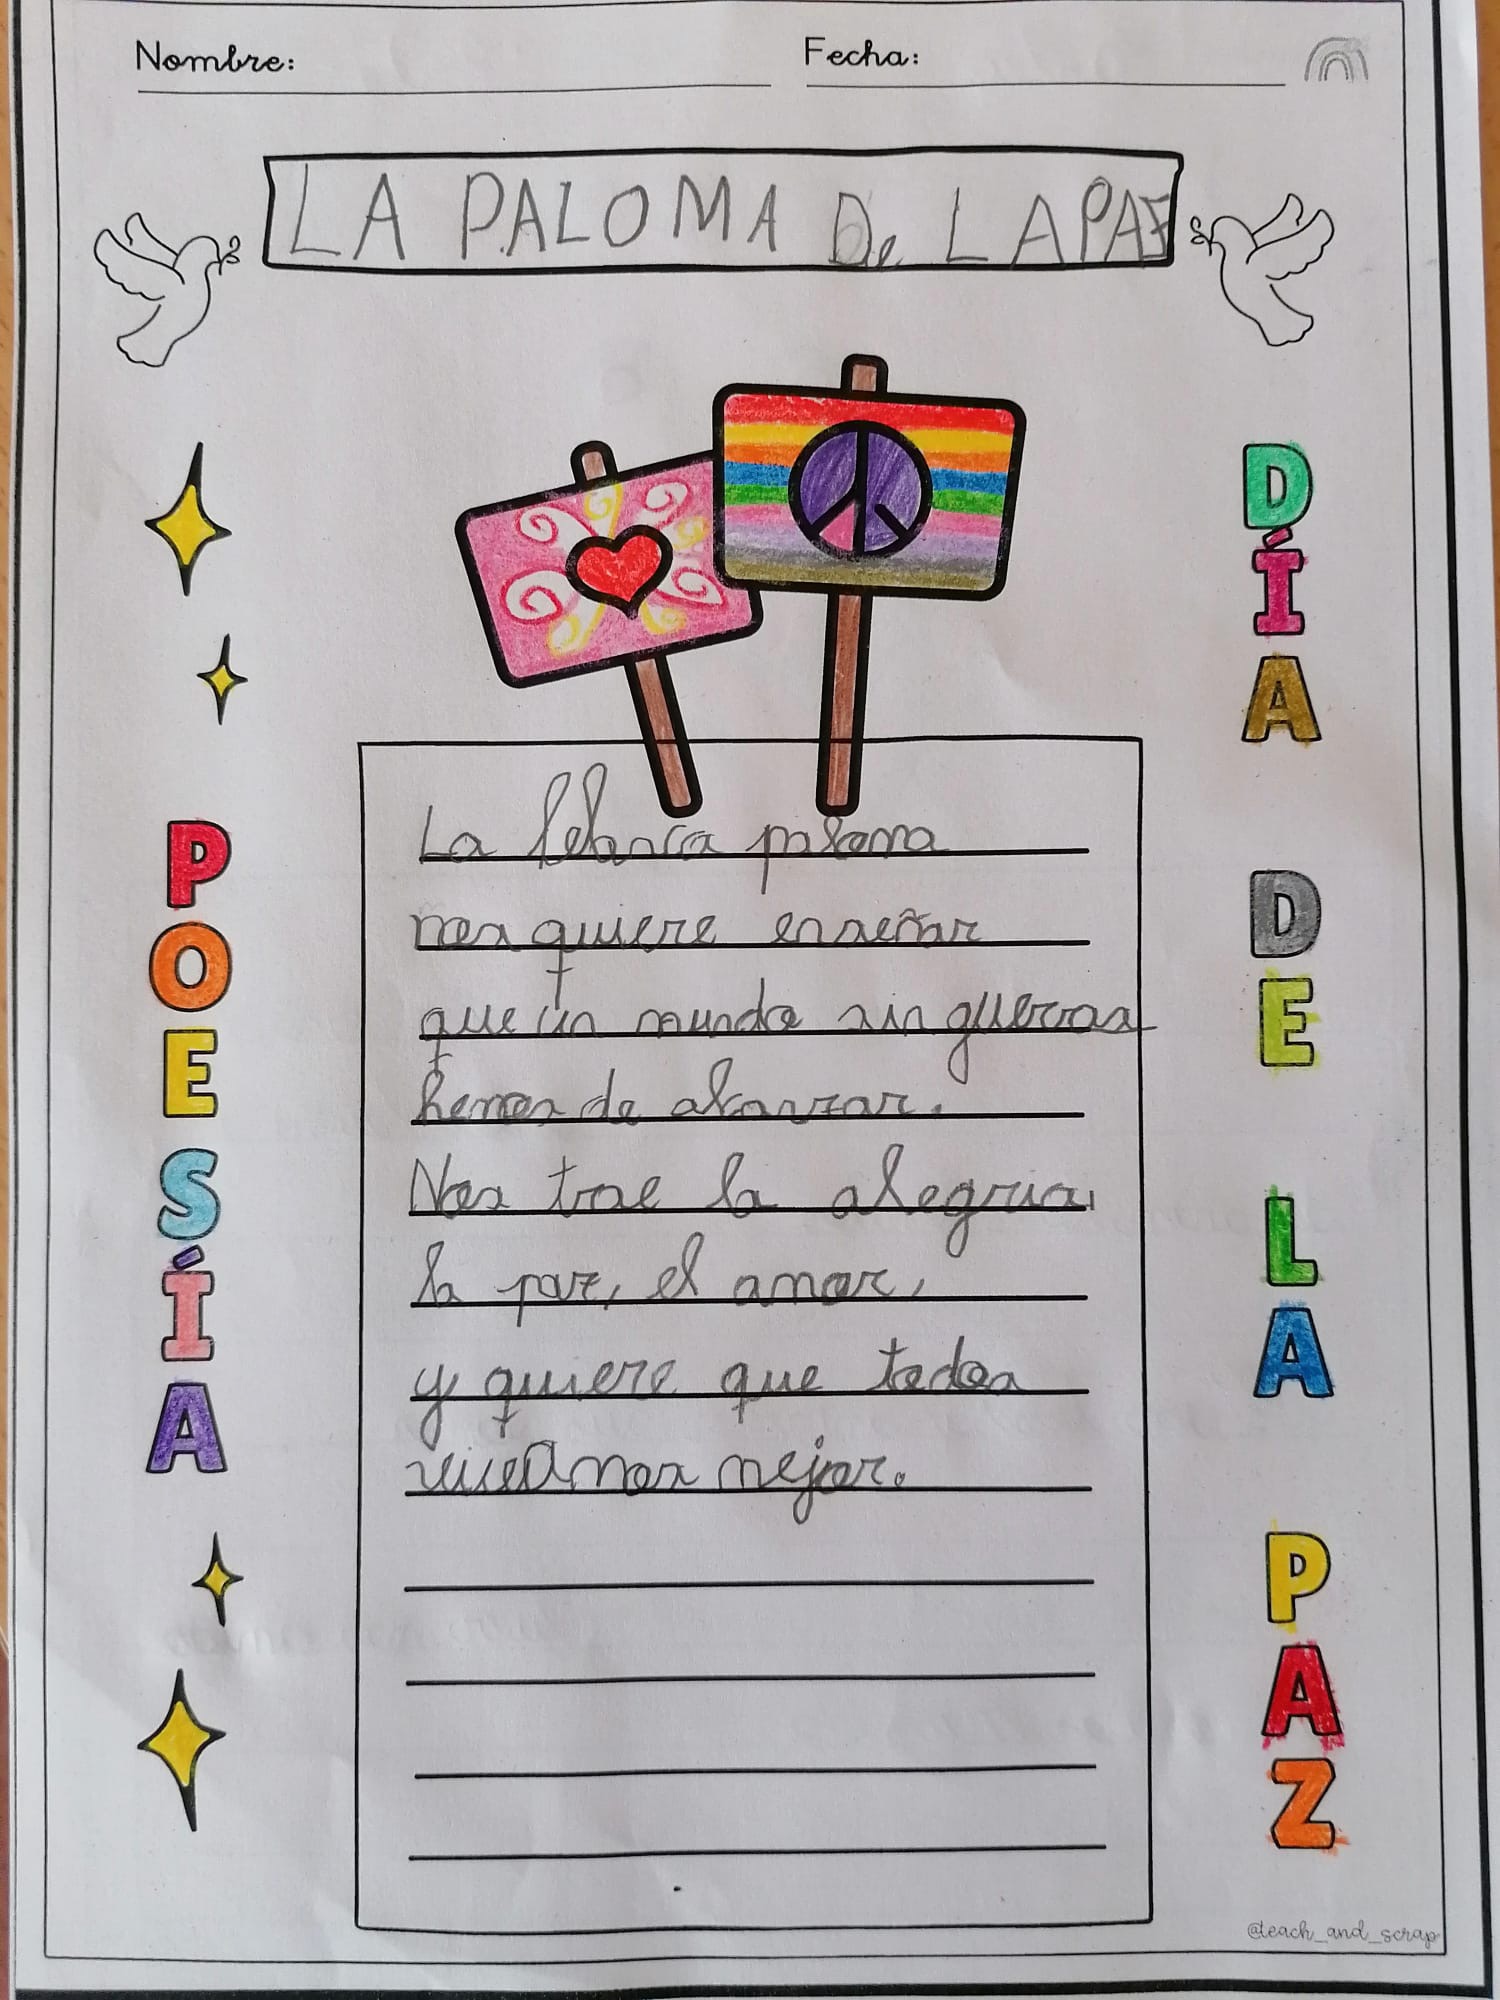 Nombre:
Fecha:
LA PALOMA De LA PAZ
La blanca paloma
nos quiere enseñar
que un mundo sin guerras
hemos de alcanzar.
Nos trae la alegria,
la paz, el amor,
y quiere que todos
vivamos mejor.
POESÍA
DÍA DE LA PAZ
@teach_and_scrap